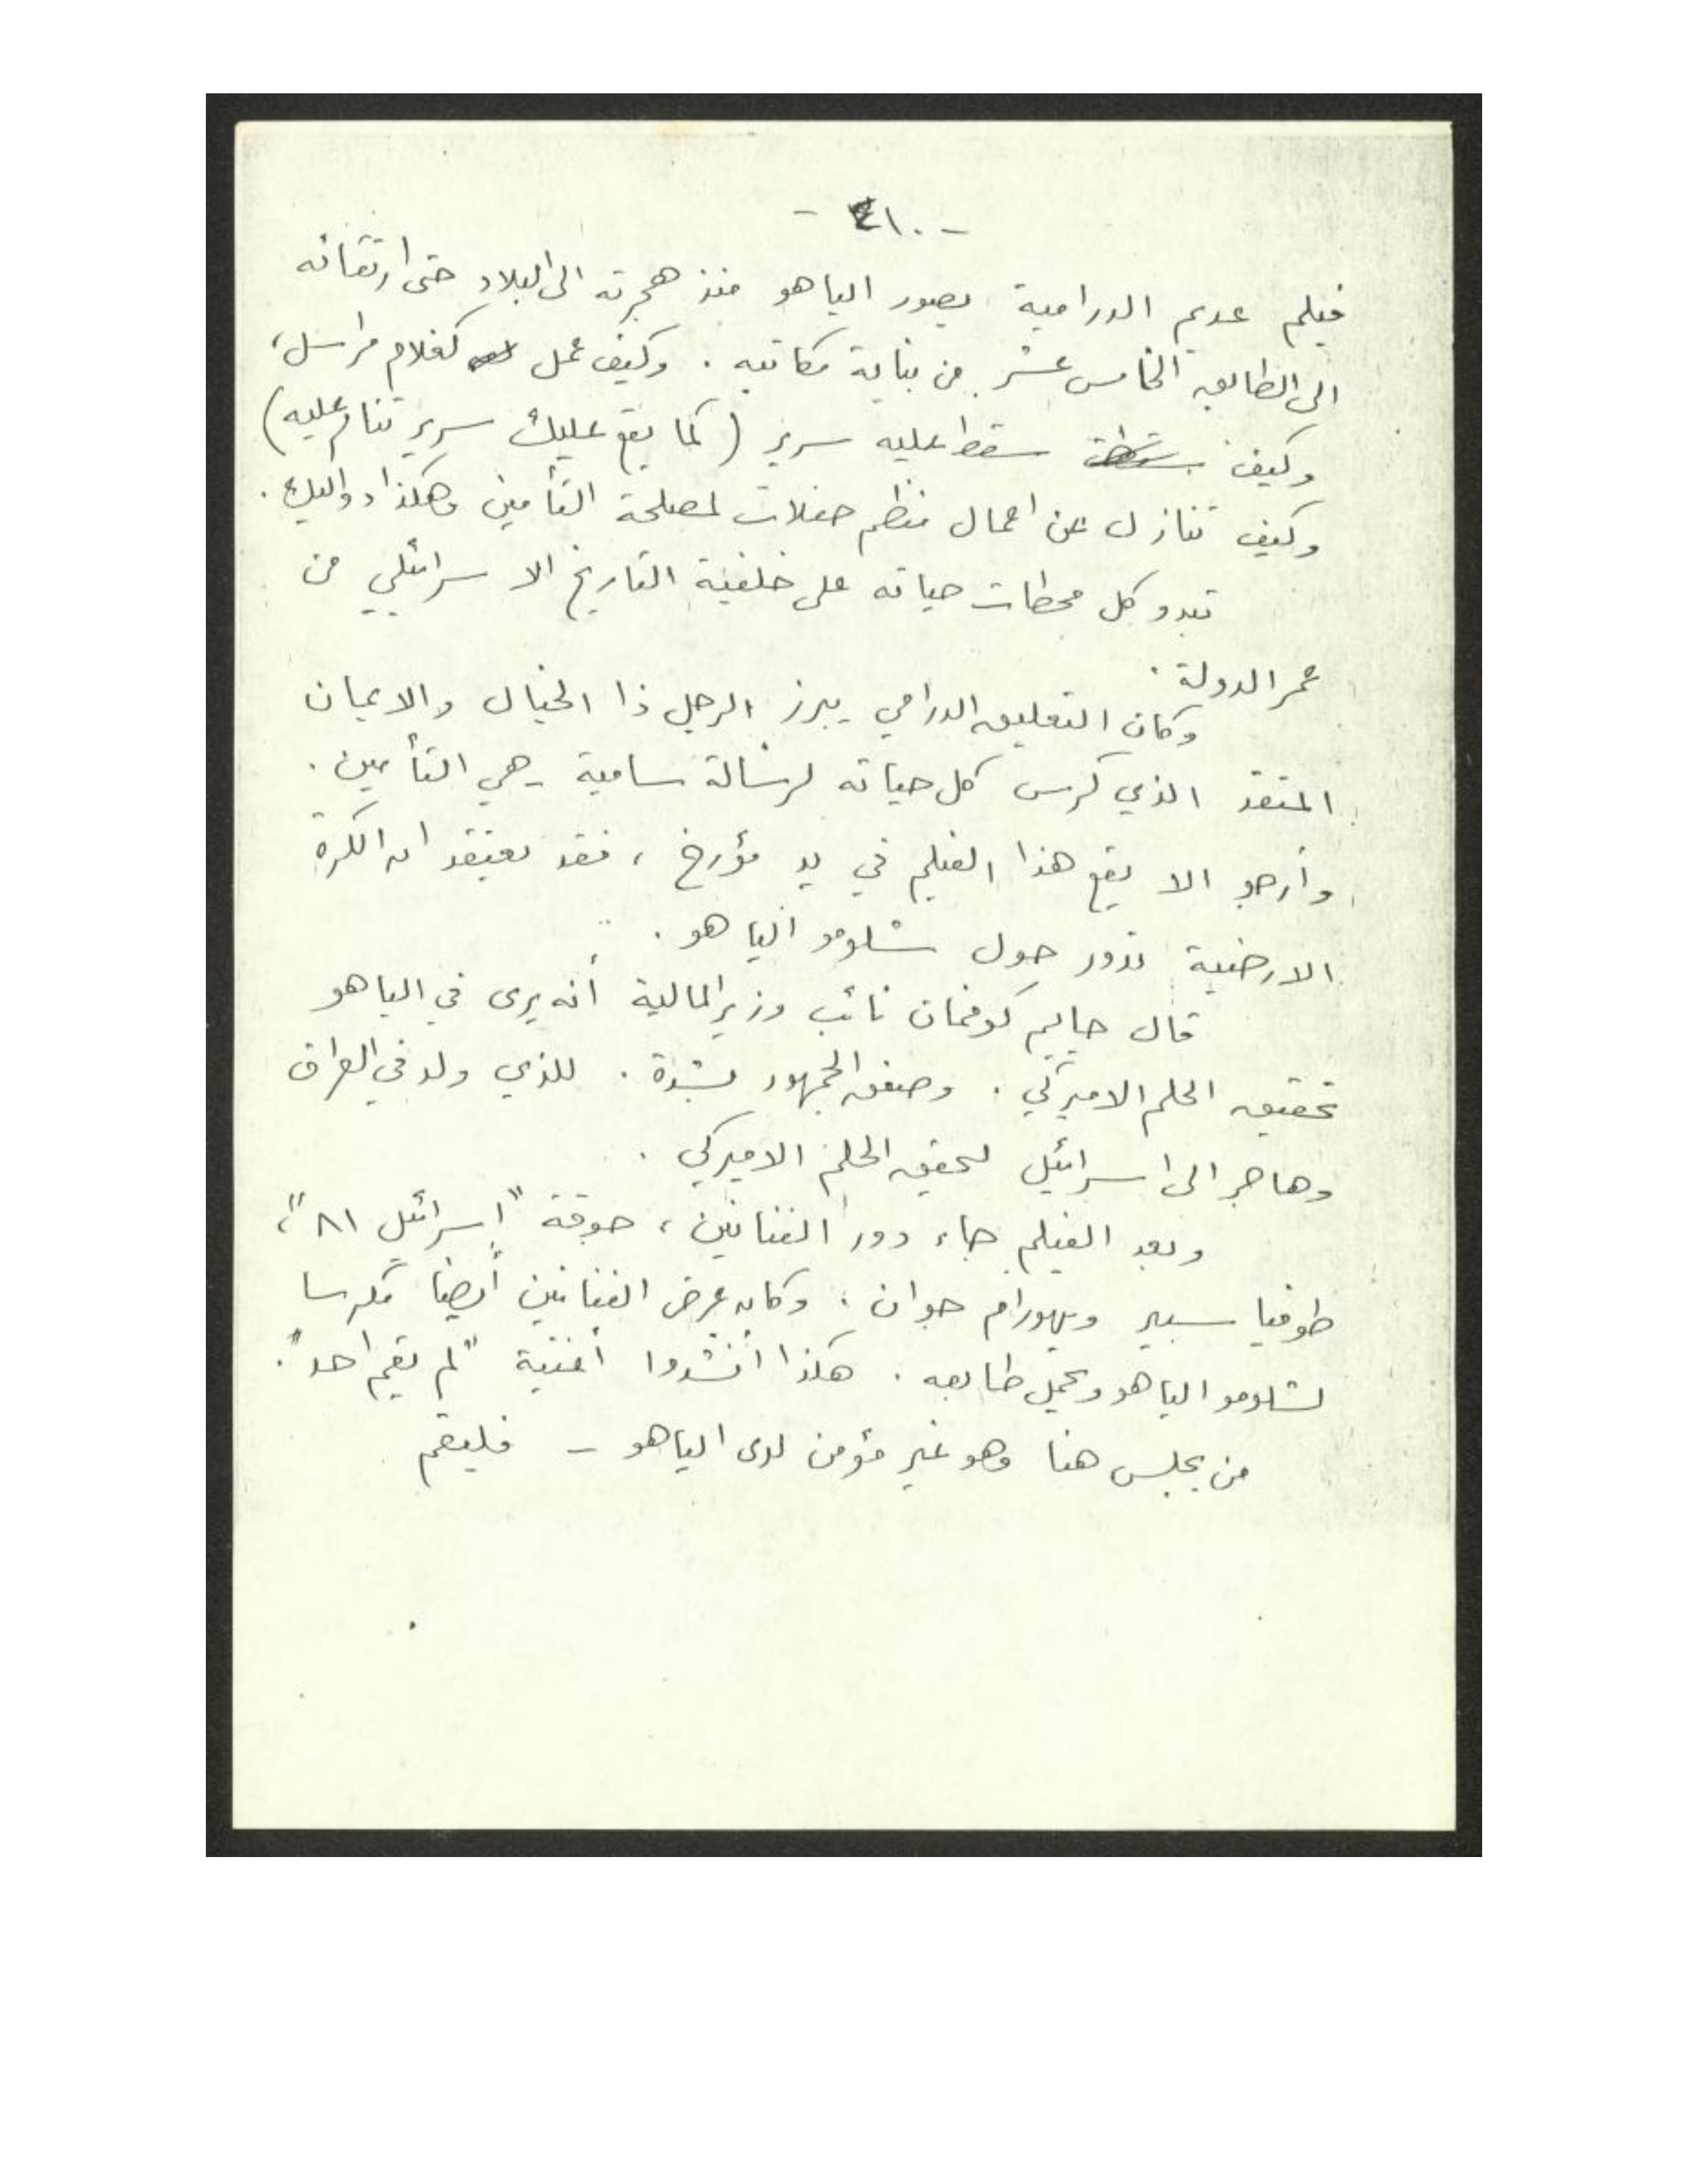 - ٤١٠ -
فيلم عديم الدرامية يصور الياهو منذ هجرته الى البلاد حتى ارتقائه
الى الطابق الخامس عشر من بناية مكاتبه . وكيف عمل كغلام مراسل،
وكيف سقط عليه سرير (كما يقع عليك سرير تنام عليه)
وكيف تنازل عن اعمال منظم حفلات لمصلحة التأمين وهكذا دواليك .
تبدو كل محطات حياته على خلفية التاريخ الاسرائيلي من
عمر الدولة .
وكان التعليق الدرامي يبرز الرجل ذا الخيال والايمان
المتقد الذي كرس كل حياته لرسالة سامية - هي التأمين .
وأرجو الا يقع هذا الفيلم في يد مؤرخ ، فقد يعتقد ان الكرة
الارضية تدور حول شلومو الياهو .
قال حاييم كوفمان نائب وزير المالية أنه يرى في الياهو
تحقيق الحلم الاميركي . وصفق الجمهور بشدة . للذي ولد في العراق
وهاجر الى اسرائيل لتحقيق الحلم الاميركي .
وبعد الفيلم جاء دور الفنانين ، جوقة "اسرائيل ٨١"،
طوفيا سبير ويهورام جوان . وكان عرض الفنانين أيضا مكرسا
لشلومو الياهو ويحمل طابعه . هكذا أنشدوا أغنية "لم يقم احد".
من يجلس هنا وهو غير مؤمن لدى الياهو - فليقم